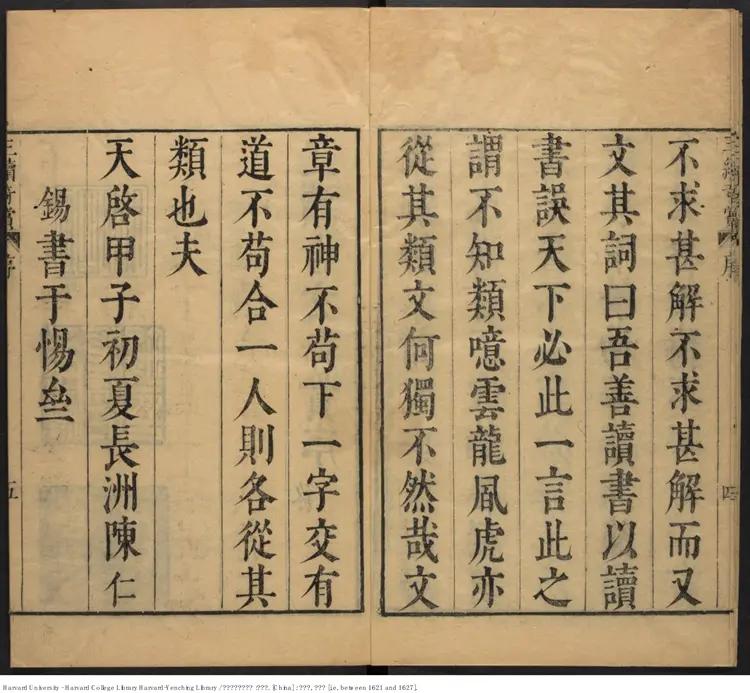 不求甚解不求甚解而又
文其詞曰吾善讀書以讀
書誤天下必此一言此之
謂不知類噫雲龍風虎亦
從其類文何獨不然哉文
四
章有神不苟下一字交有
道不苟合一人則各從其
類也夫
天啓甲子初夏長洲陳仁
錫書于惕壘
五
Harvard University - Harvard College Library Harvard-Yenching Library / ???????? :???, [China] : ???, ??? [i.e. between 1621 and 1627].